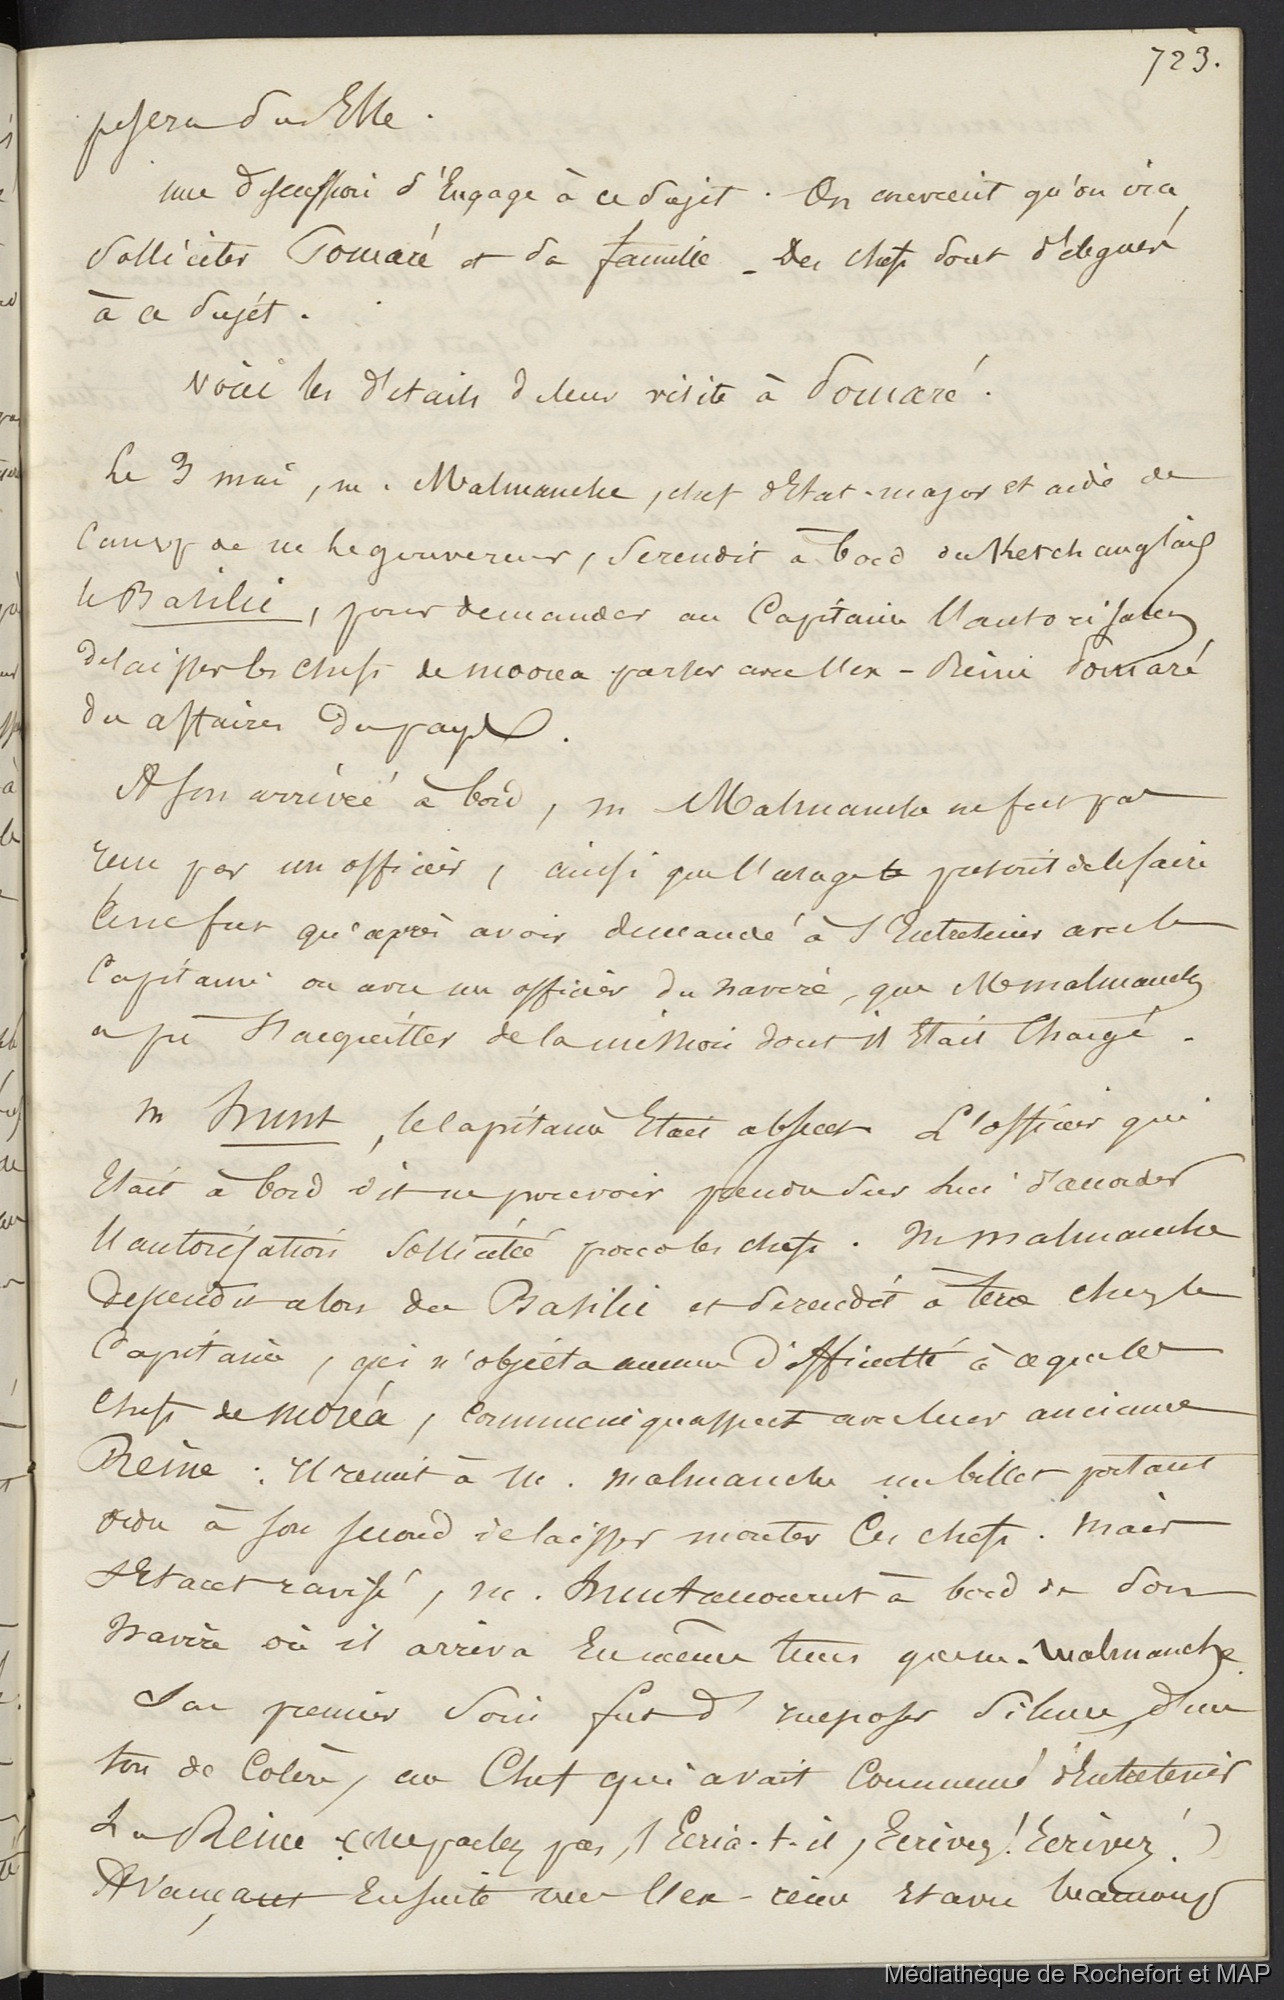 723.
pesera sur Elle.
une discussion s'Engage à ce sujet. On convient qu'on ira
solliciter Pomaré et sa famille - Des chefs sont délégués
à ce sujet.
Voici les détails de leur visite à Pomaré.
Le 3 mai, m. Malmanche, chef d'Etat-major et aide de
camp de m le gouverneur, se rendit à bord du Ketch anglais
le Basilic, pour demander au Capitaine l'autorisation
de laisser les chefs de moorea parler avec l'ex-Reine Pomaré
des affaires du pays.
A son arrivée à bord, m Malmanche ne fut pas
reçu par un officier, ainsi que l'usage prescrit de le faire
Ce ne fut qu'après avoir demandé à s'Entretenir avec le
Capitaine ou avec un officier du navire, que M malmanche
a pu s'acquitter de la mission dont il était chargé.
m Hunt, le capitaine Etait absent L'officier qui
Etait à bord dit ne pouvoir prendre sur lui d'accorder
l'autorisation sollicitée pour les chefs. M malmanche
descendit alors du Basilic et se rendit à terre chez le
Capitaine, qui n'objecta aucune difficulté à ce que les
chefs de moréa, communiquassent avec leur ancienne
Reine. Il remit à m. malmanche un billet portant
ordre à son second de laisser monter les chefs. mais
s'Etant ravisé, m. Hunt accourut à bord de son
navire où il arriva En même tems que m. malmanche.
Son premier soin fut d'imposer silence, d'un
ton de colère, au Chef qui avait commencé d'Entretenir
La Reine (ne parlez pas, s'Ecria-t-il, Ecrivez! Ecrivez!)
Avançant Ensuite vers l'ex-reine et avec beaucoup
Médiathèque de Rochefort et MAP